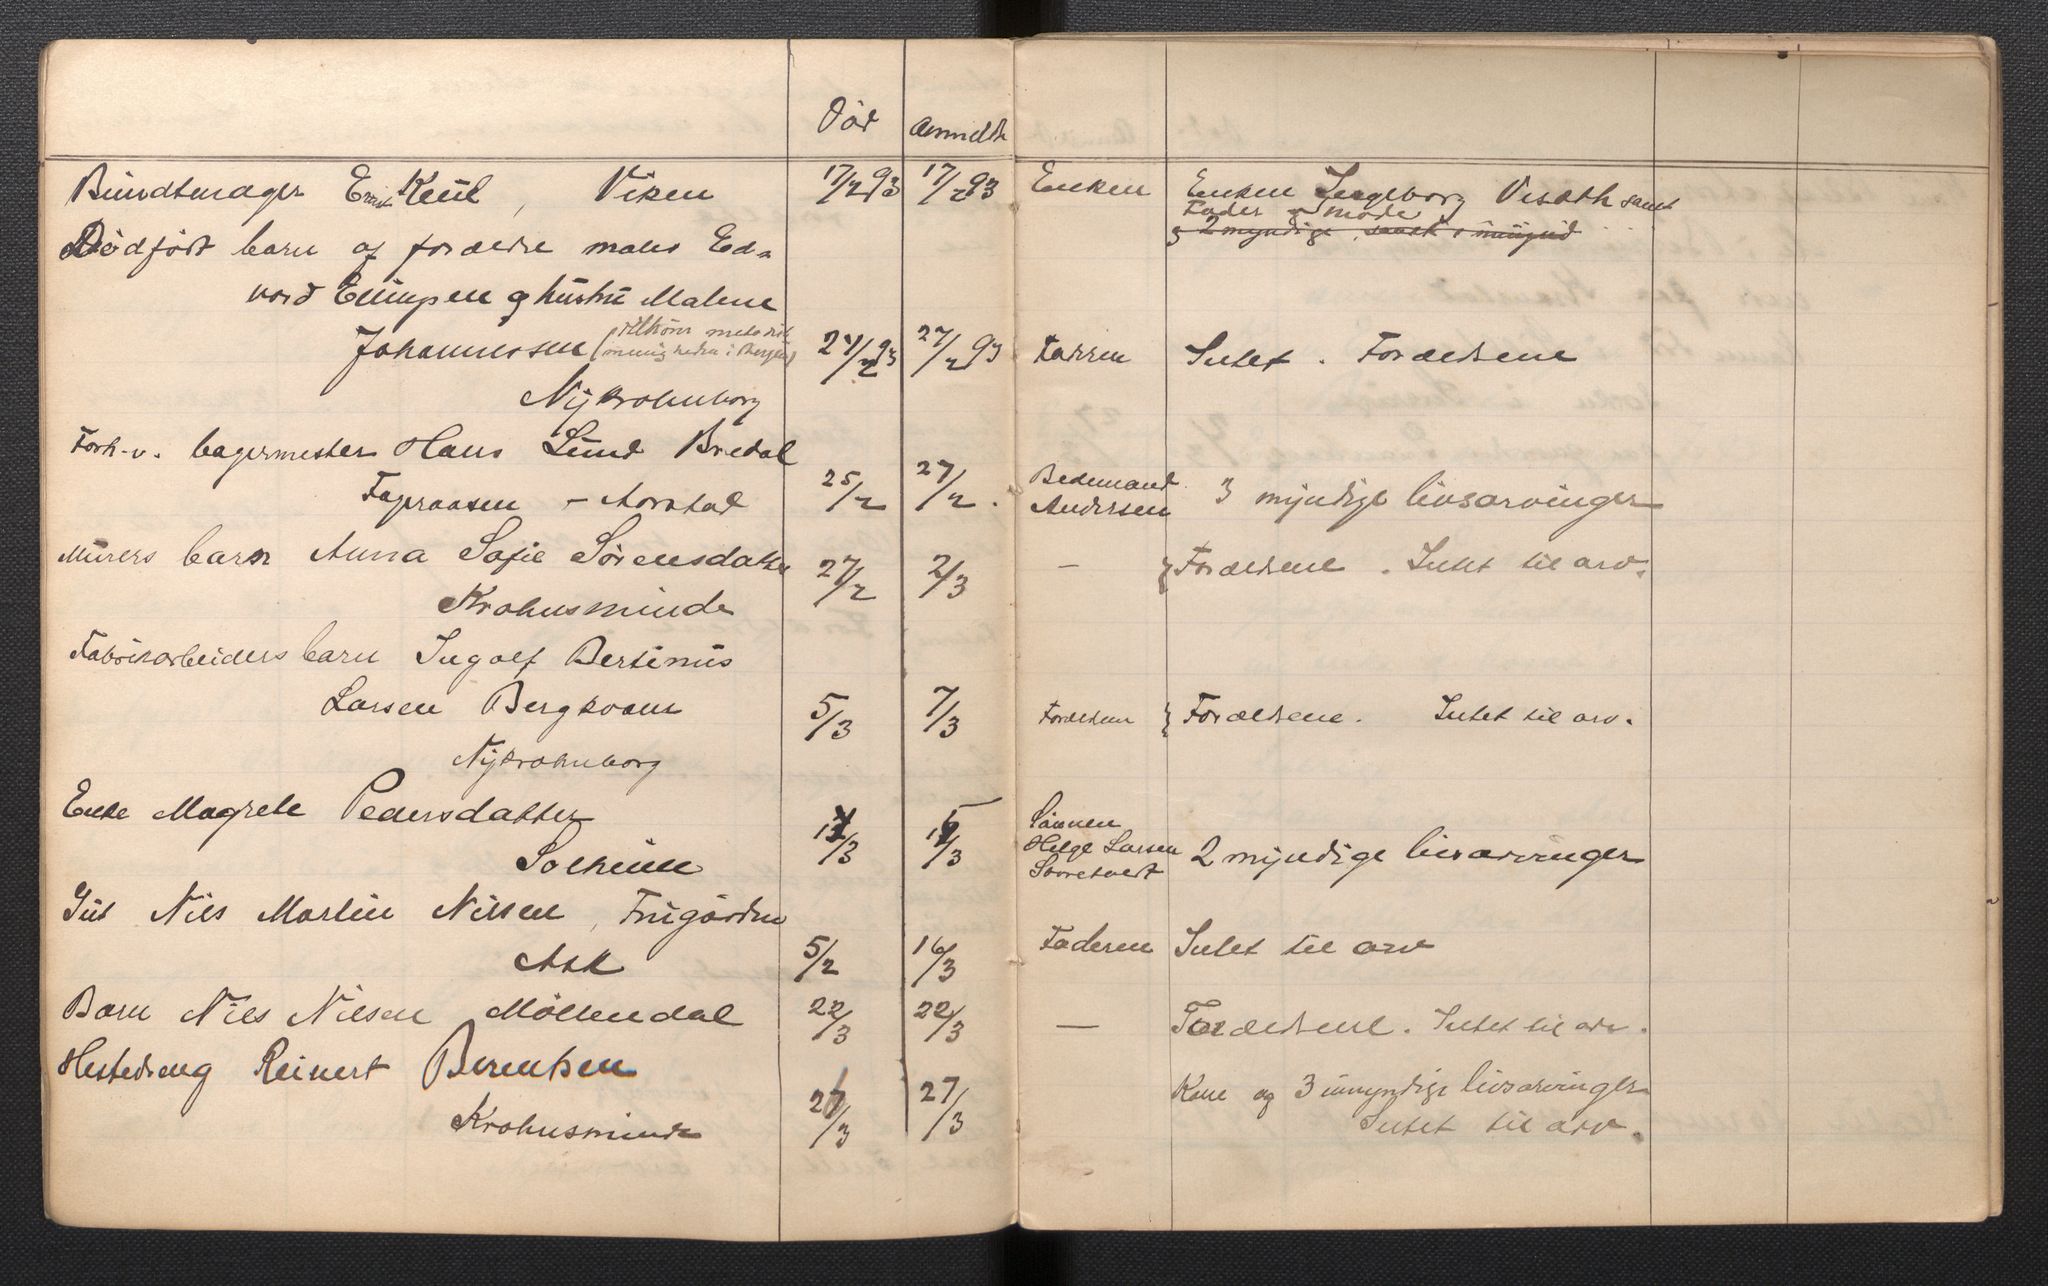 Død Anmeldt
Bundtmager Ernst Keül, Viken 17/2 93 17/2 93 Enken Enken Ingeborg Viseth samt
Fader og moder
og 2 myndige, samt 1 umynd
Dødfødt barn af forældre maler Ed-
vard Ellingsen og hustru Malene
Johannessen (tilhører metodist
menigheden i Bergen) 27/2 93 27/2 93 Faderen Intet. Forældrene
Nykrohnborg
Forh.v. bagermester Hans Lund Bredal
Fageraasen - Aarstad 25/2 27/2. Bedemand
Andersen 3 myndige livsarvinger
Murers barn Anna Sofie Sørensdatter 27/2 2/3 — Forældrene. Intet til arv.
Krohnsminde
Fabrikarbeiders barn Ingolf Bertinus
Larsen Bergkvam 5/3 7/3 Forældrene Forældrene. Intet til arv.
Nykrohnborg
Enke Magrete Pedersdatter
Solheim /3 /3 Sønnen
Helge Larsen 2 myndige livsarvinger
Gut Nils Martin Nilsen, Frugården
Ask 5/2 16/3 Faderen Intet til arv
Barn Nils Nilsen Møllendal 22/3 22/3 — Forældrene. Intet til arv.
Hestedreng Reinert Berentsen
Krohnsminde 27/3 27/3 Kone og 3 umyndige livsarvinger
Intet til arv.